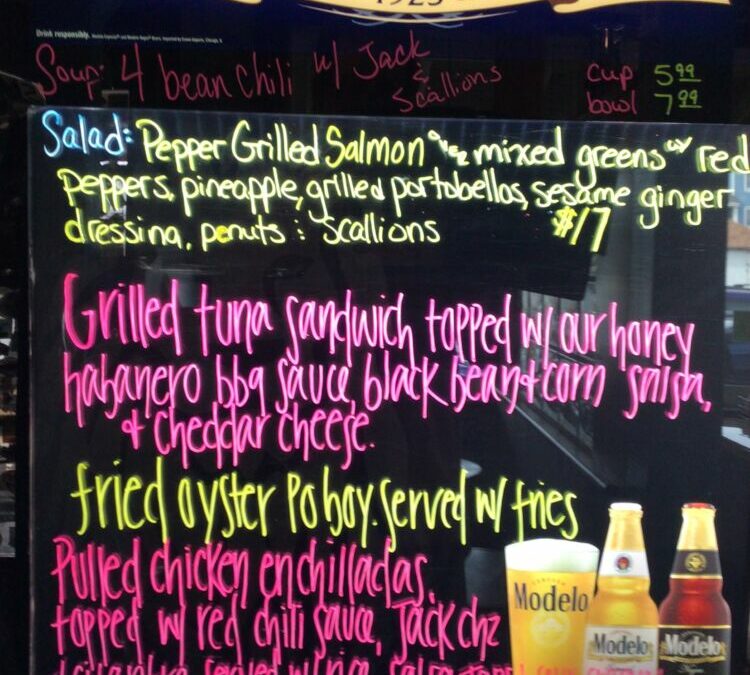 1925
Drink responsibly.
Soup: 4 bean chili w/ Jack
& Scallions
cup 5.99
bowl 7.99
Salad: Pepper Grilled Salmon over mixed greens w/ red
peppers, pineapple, grilled portobellos, sesame ginger
dressing, penuts & scallions $17
Grilled tuna sandwich topped w/ our honey
habanero bbq sauce, black bean + corn salsa,
+ cheddar cheese.
fried oyster Po boy. Served w/ fries
Pulled chicken enchilladas.
topped w/ red chili sauce, Jack chz
+ cilantro served w/ rice, salsa
Modelo
Modelo
Modelo